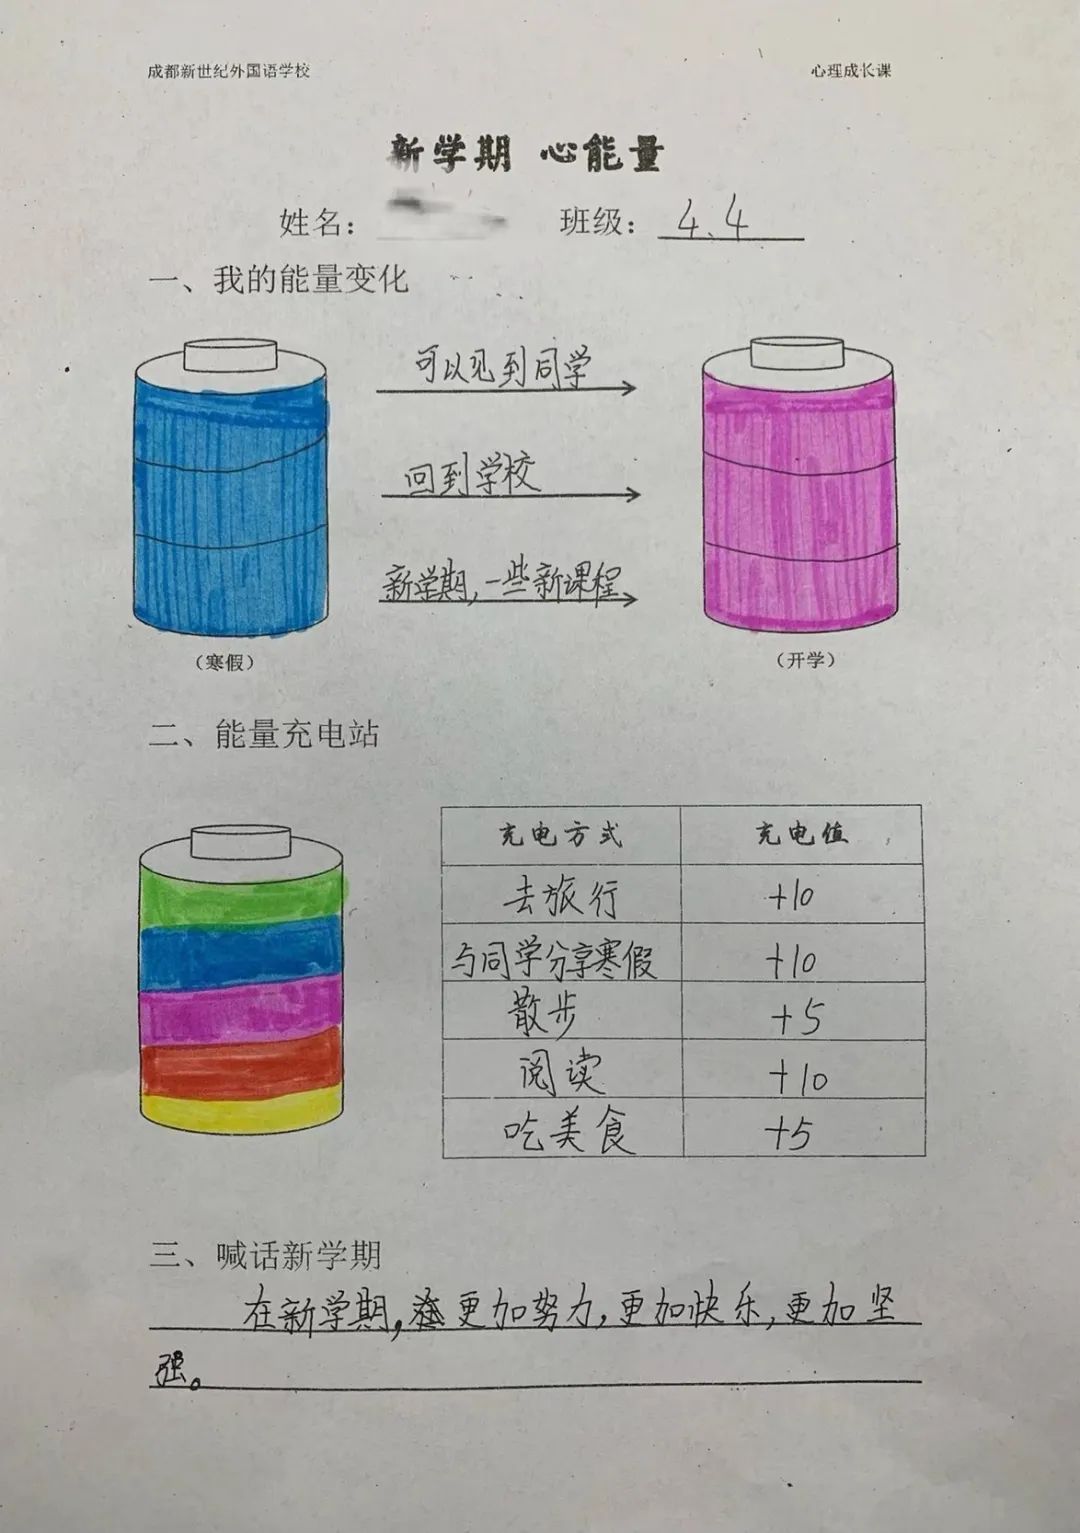 成都新世纪外国语学校 心理成长课
新学期 心能量
姓名： 班级：4.4
一、我的能量变化
可以见到同学
回到学校
新学期,一些新课程
（寒假） （开学）
二、能量充电站
充电方式 充电值
去旅行 +10
与同学分享寒假 +10
散步 +5
阅读 +10
吃美食 +5
三、喊话新学期
在新学期,更加努力,更加快乐,更加坚
强。